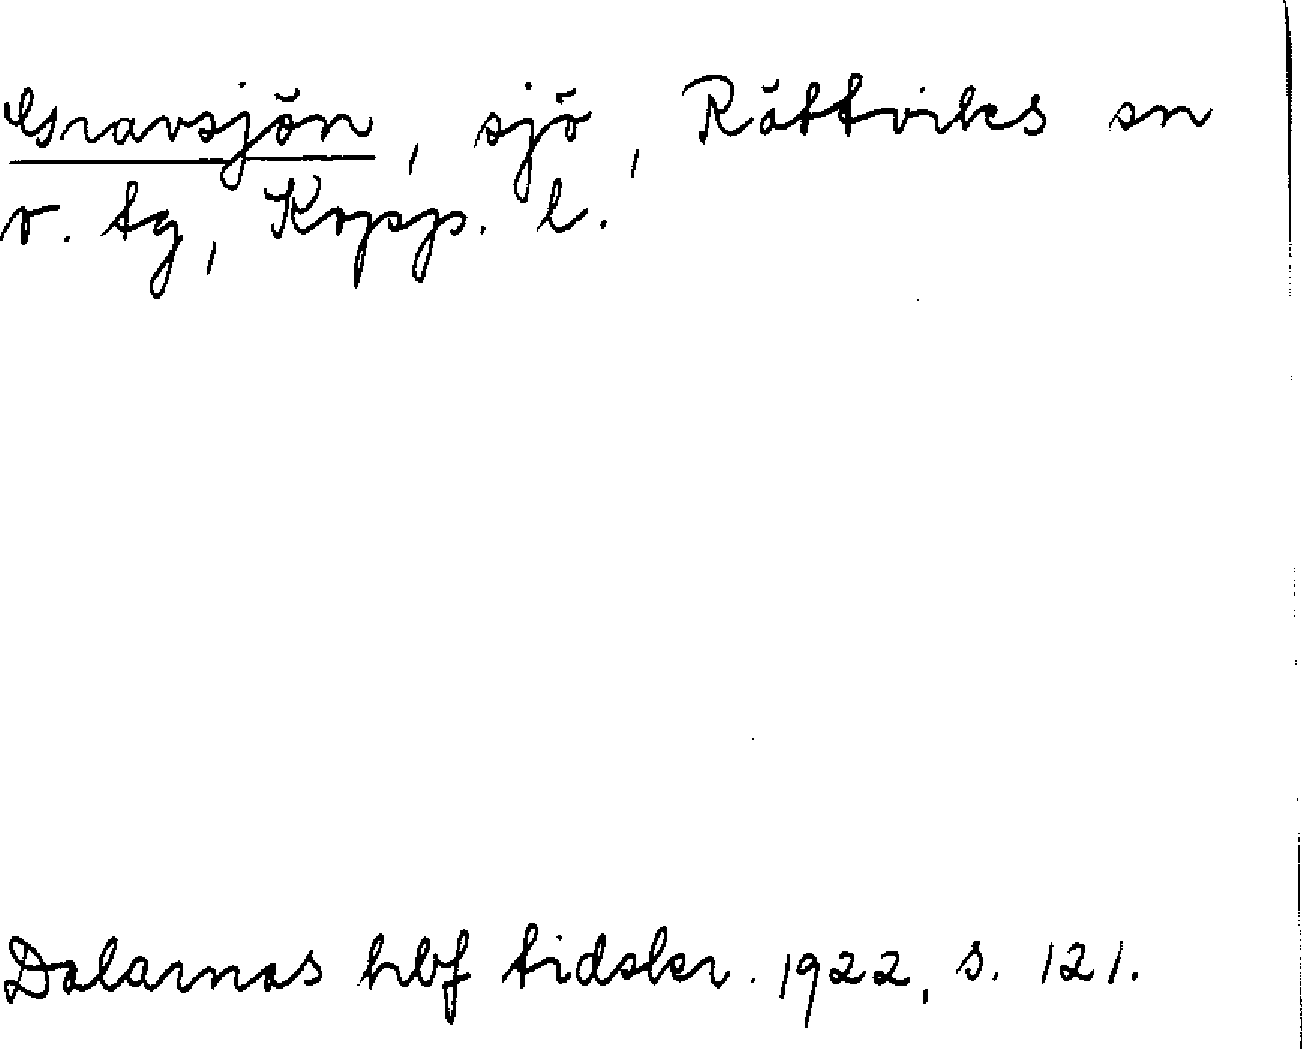 Gravsjön, sjö, Rättviks sn
o. tg, Kopp. l.
Dalarnas hbf tidskr. 1922, s. 121.